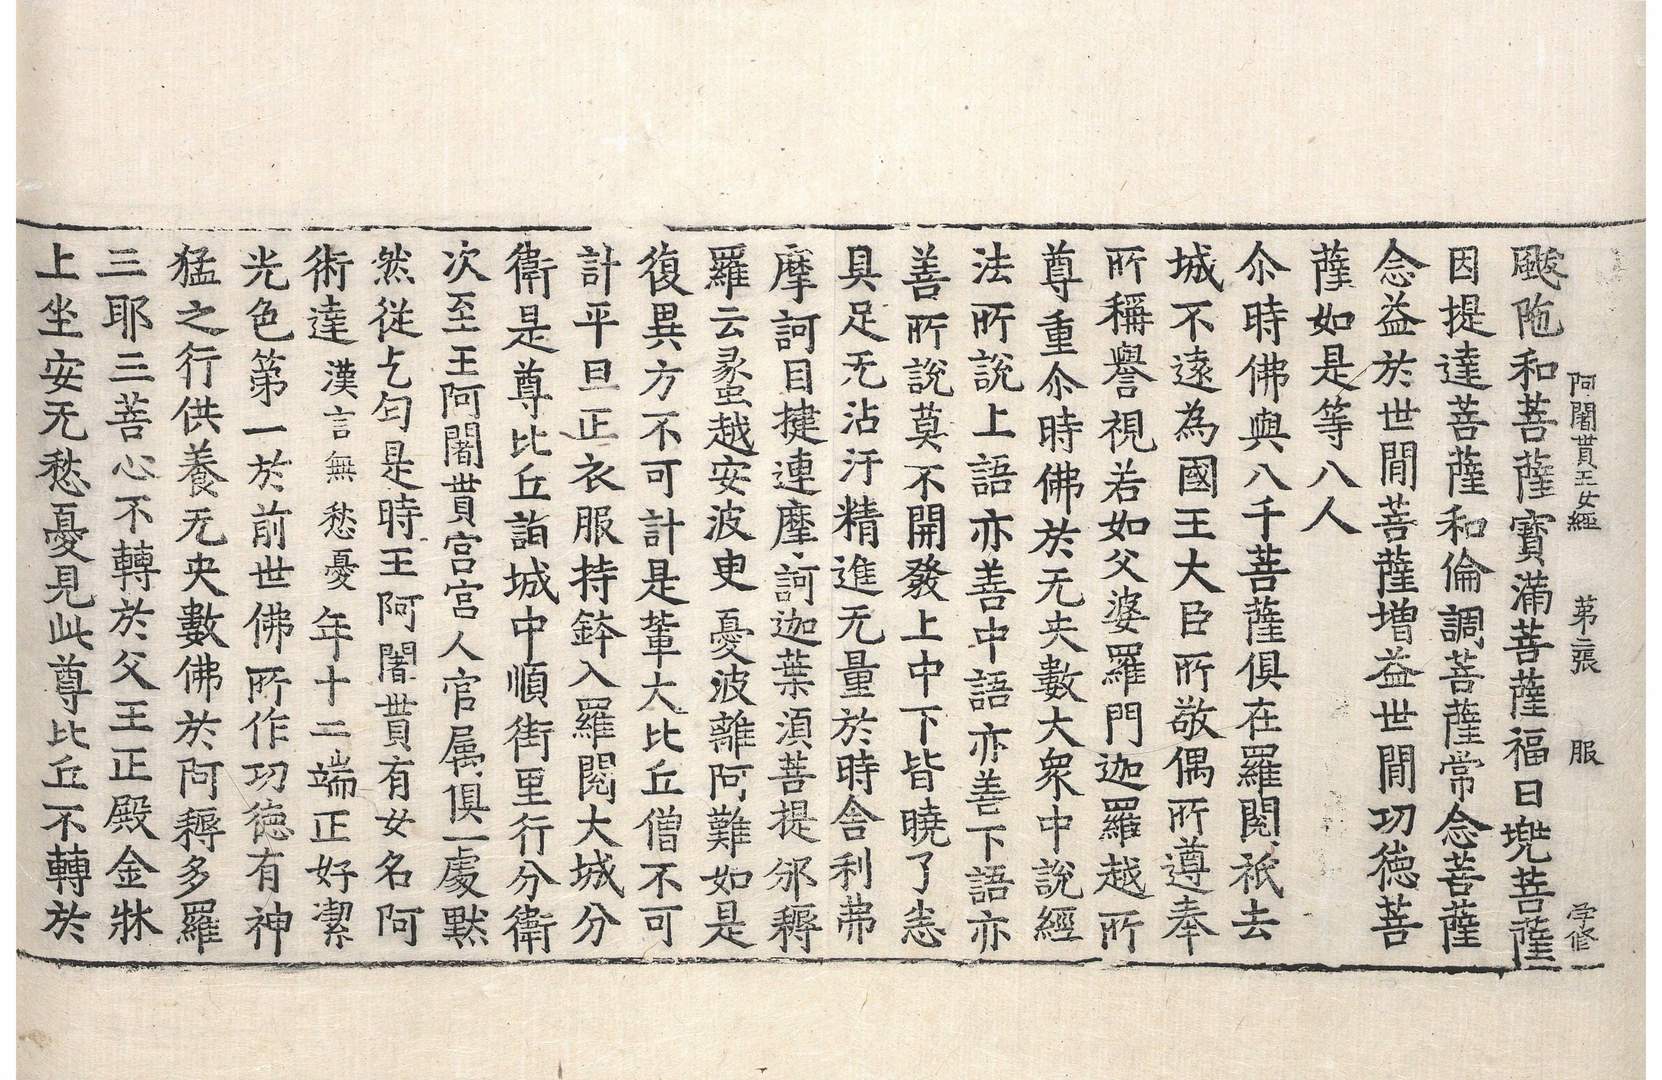 阿闍貰王女經　第二張　服　学修
颰陁和菩薩寶滿菩薩福日兠菩薩
因提達菩薩和倫調菩薩常念菩薩
念益於世閒菩薩増益世閒功徳菩
薩如是等八人
尒時佛與八千菩薩俱在羅閱祇去
城不遠為國王大臣所敬偶所遵奉
所稱譽視若如父婆羅門迦羅越所
尊重尒時佛於无央數大衆中說經
法所說上語亦善中語亦善下語亦
善所說莫不開發上中下皆曉了悉
具足无沾汙精進无量於時舎利弗
摩訶目揵連摩訶迦葉湏菩提邠耨
羅云朂越安波㕝憂波離阿難如是
復異方不可計是軰大比丘僧不可
計平旦正衣服持鉢入羅閱大城分
衛是尊比丘詣城中順街里行分衛
次至王阿闍貰宮宮人官属俱一處黙
然從乞匃是時王阿闍貰有女名阿
術達漢言無愁憂年十二端正好潔
光色第一於前世佛所作功徳有神
猛之行供養无央數佛於阿耨多羅
三耶三菩心不轉於父王正殿金牀
上坐安无愁憂見此尊比丘不轉於